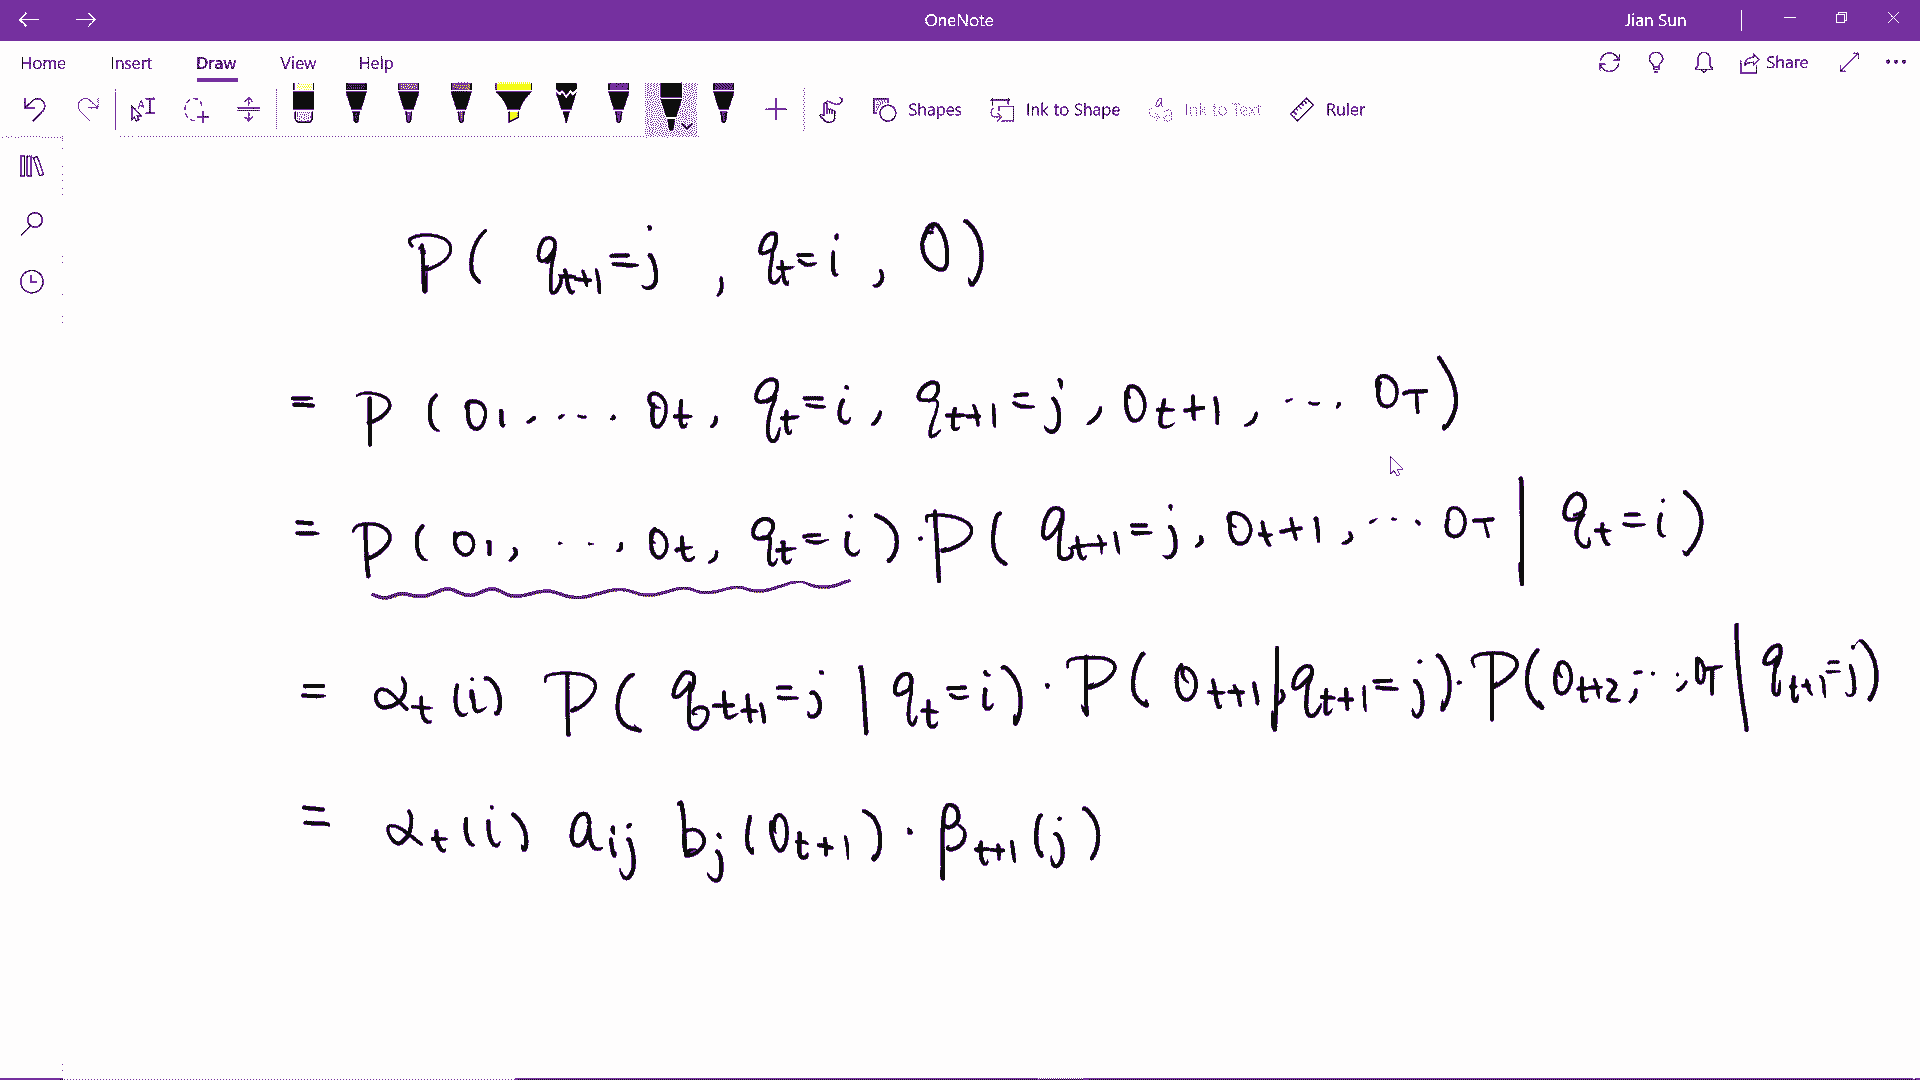 OneNote
Jian Sun
Home Insert Draw View Help
Share
Shapes Ink to Shape Ink to Text Ruler
P( q_{t+1}=j , q_t=i , O)
= P (O_1, .... O_t, q_t=i, q_{t+1}=j, O_{t+1}, ... O_T)
= P(O_1, ..., O_t, q_t=i)·P( q_{t+1}=j, O_{t+1}, ... O_T | q_t=i)
= α_t(i) P( q_{t+1}=j | q_t=i)·P( O_{t+1} | q_{t+1}=j)·P(O_{t+2}, ..., O_T | q_{t+1}=j)
= α_t(i) a_{ij} b_j(O_{t+1})·β_{t+1}(j)